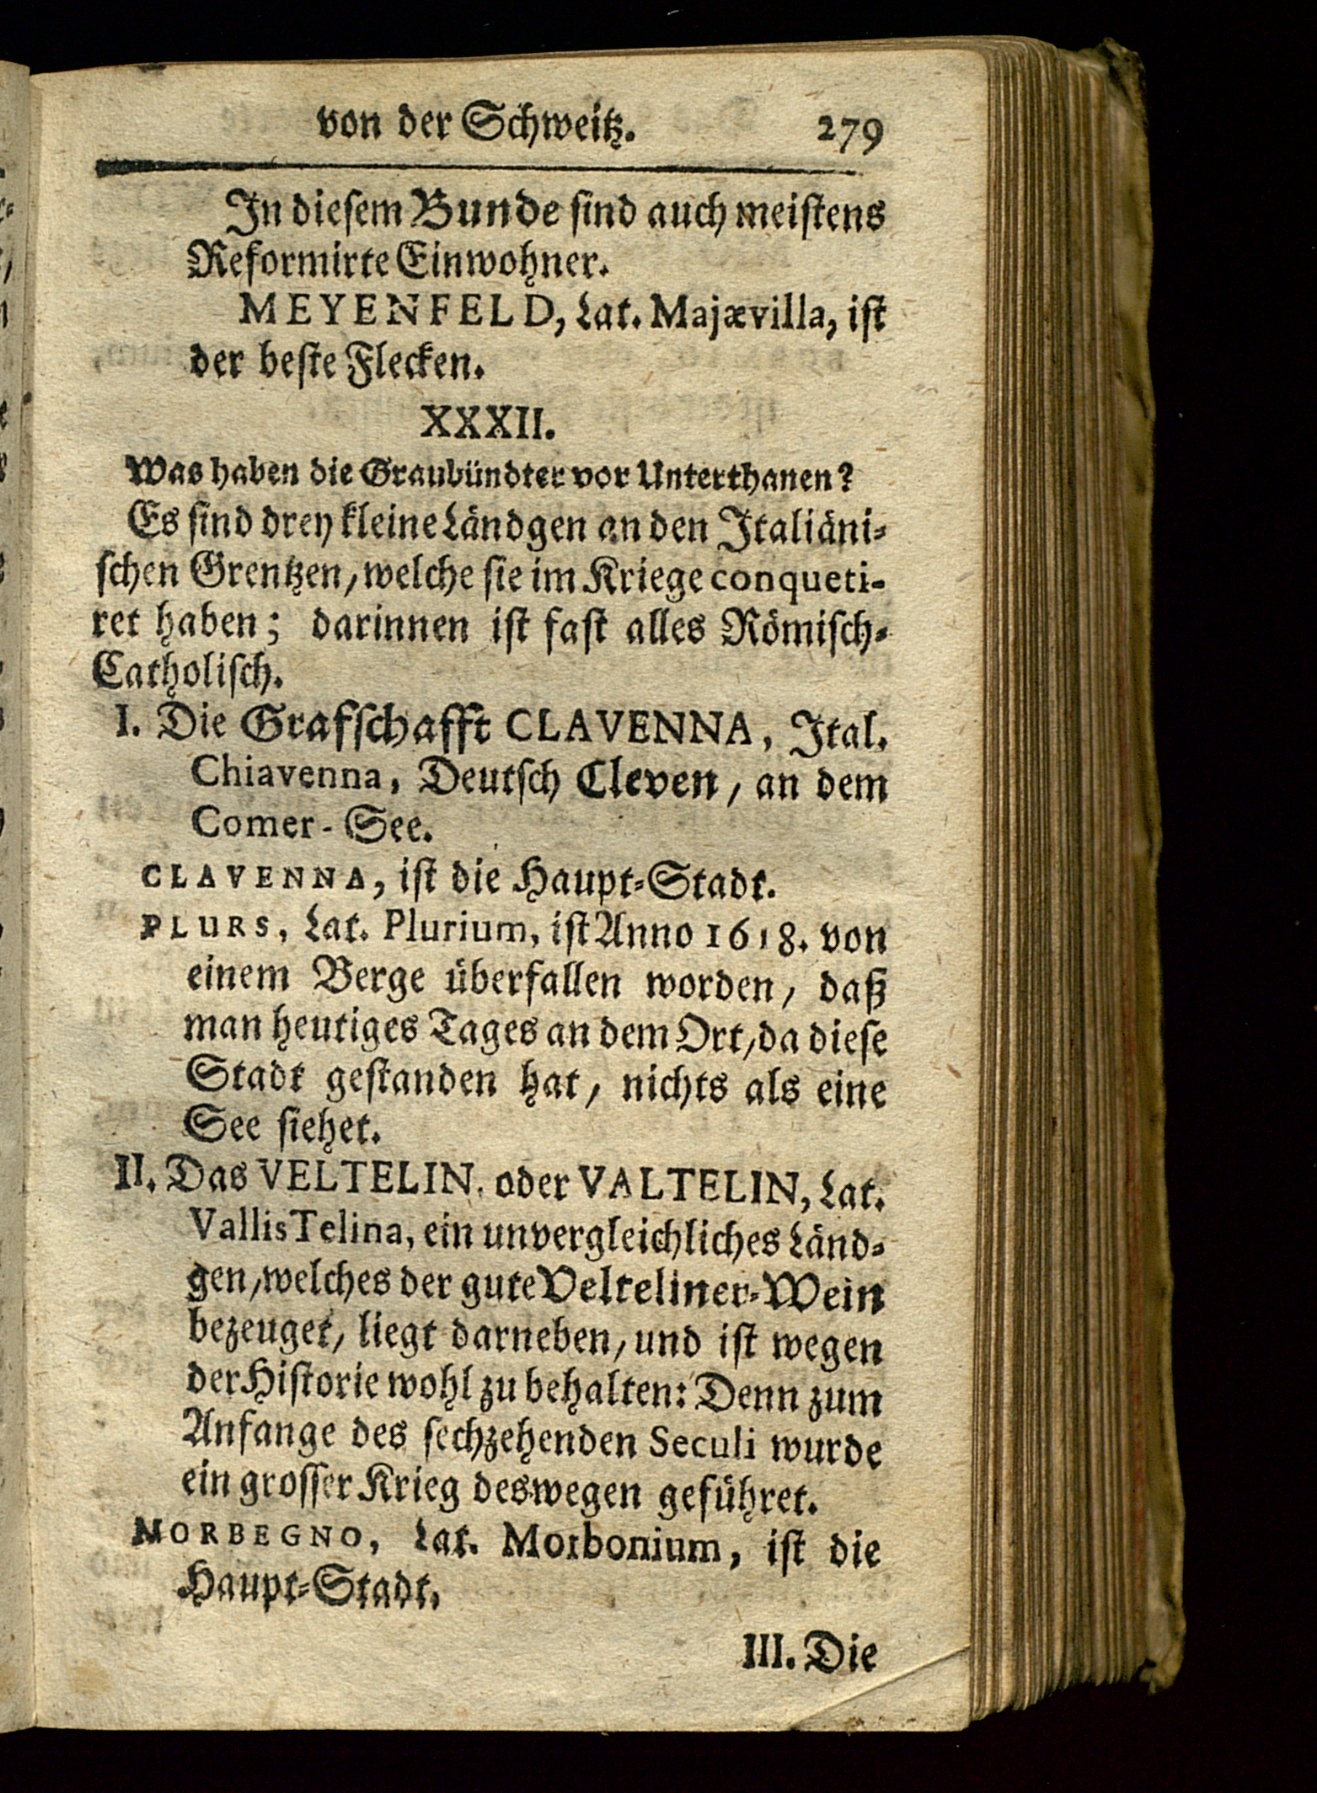 von der Schweitz. 279
In diesem Bunde sind auch meistens
Reformirte Einwohner.
MEYENFELD, Lat. Majævilla, ist
der beste Flecken.
XXXII.
Was haben die Graubündter vor Unterthanen?
Es sind drey kleine Ländgen an den Italiäni-
schen Grentzen, welche sie im Kriege conqueti-
ret haben; darinnen ist fast alles Römisch-
Catholisch.
I. Die Grafschafft CLAVENNA, Ital.
Chiavenna, Deutsch Cleven, an dem
Comer-See.
CLAVENNA, ist die Haupt-Stadt.
PLURS, Lat. Plurium, ist Anno 1618. von
einem Berge überfallen worden, daß
man heutiges Tages an dem Ort, da diese
Stadt gestanden hat, nichts als eine
See siehet.
II. Das VELTELIN, oder VALTELIN, Lat.
Vallis Telina, ein unvergleichliches Länd-
gen, welches der gute Velteliner-Wein
bezeuget, liegt darneben, und ist wegen
der Historie wohl zu behalten: Denn zum
Anfange des sechzehenden Seculi wurde
ein grosser Krieg deswegen geführet.
MORBEGNO, Lat. Morbonium, ist die
Haupt-Stadt.
III. Die